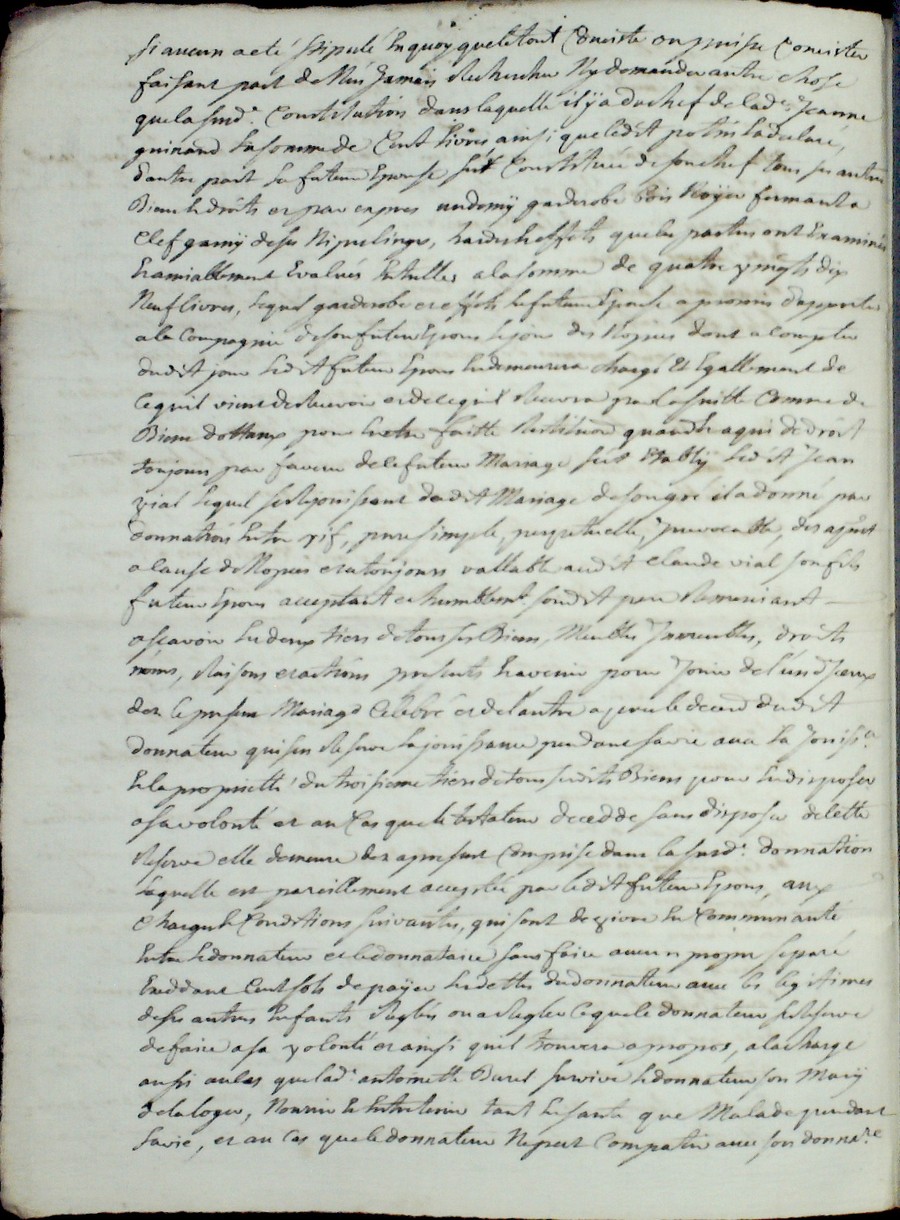 si aucun acte stipulé En quoy que le tout Consiste ou puisse Consister
faisant pact de N'en Jamais Rechercher Ny demander autre chose
que la susd.e Constitution dans laquelle il y a du chef de lad.e Jeanne
guinand la somme de Cent livres, ainsi que led.t l'a declaré,
dautre part la future Epouse s'est Constituée de son chef tous ses autres
Biens & droits et par expres un demÿ garderobe bois Noyer fermant a
Clef garnÿ de ses Nipes linges, hardes & effets que les parties ont Examinés
& amiablement Evalués Entr'elles a la somme de quatre vingts dix
Neuf livres, lequel garderobe et effets la future Epouse a promis d'apporter
a la Compagnie de son futur Epoux le jour des Nopces dont a compter
dudit jour ledit futur Epoux En demeurera chargé Et Egallement de
ce qu'il vient de Recevoir et de ce qu'il Recevra par la suitte Comme de
Biens dottaux pour En etre faitte Restitution quand & a qui de droit
toujours par faveur de le futur Mariage s'est Etablÿ ledit Jean
vial lequel se Rejouissant dudit Mariage de son gré il a donné par
donnation Entre vif, pure simple, perpetuelle, Jrrevocable, des apresent
a cause de Nopces et a toujours vallable audit Claude vial son fils
futur Epoux acceptant et humblem.t sondit pere Remerciant —
a scavoir les deux tiers de tous ses Biens, Meubles Jmmeubles, droits
noms, Raisons et actions presents & a venir pour Jouir de l'un d'Jceux
des le present Mariage Celebré et de l'autre apres le deced dudit
donnateur qui s'en Reserve la jouissance pendant sa vie avec la Jouiss.ce
& la proprietté du troisieme tiers de tous sesdits Biens pour En disposer
a sa volonté et au Cas que le testateur decedde sans disposer de cette
Reserve elle demeure des apresent Comprise dans la susd.e donnation
laquelle est pareillement acceptée par ledit futur Epoux, aux
charges & Conditions suivantes, qui sont de vivre En Communauté
Entre le donnateur et le donnataire sans faire aucun propre separé
Exceddant Cent sols de paÿer les dettes du donnateur avec les legitimes
de ses autres Enfants Reglés ou a Regler ce que le donnateur se Reserve
de faire a sa volonté et ainsi qu'il trouvera a propos, a la charge
aussi au cas que lad.e antoinette Burel survive le donnateur son Marÿ
de la loger, Nourrir & Entretenir tant En santé que Malade pendant
sa vie, et au Cas que le donnateur Ne peut Compatir avec son donna.re